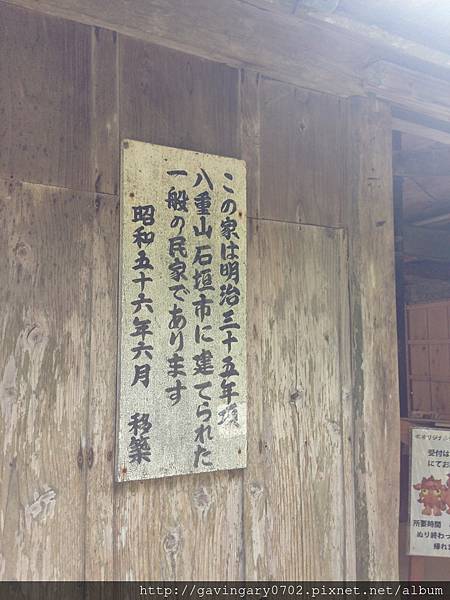 この家は明治三十五年頃
八重山石垣市に建てられた
一般の民家であります
昭和五十六年六月 移築
オリジナル
受付は
にてお
所要時間
ぬり終わっ
帰れ
http://gavingary0702.pixnet.net/album